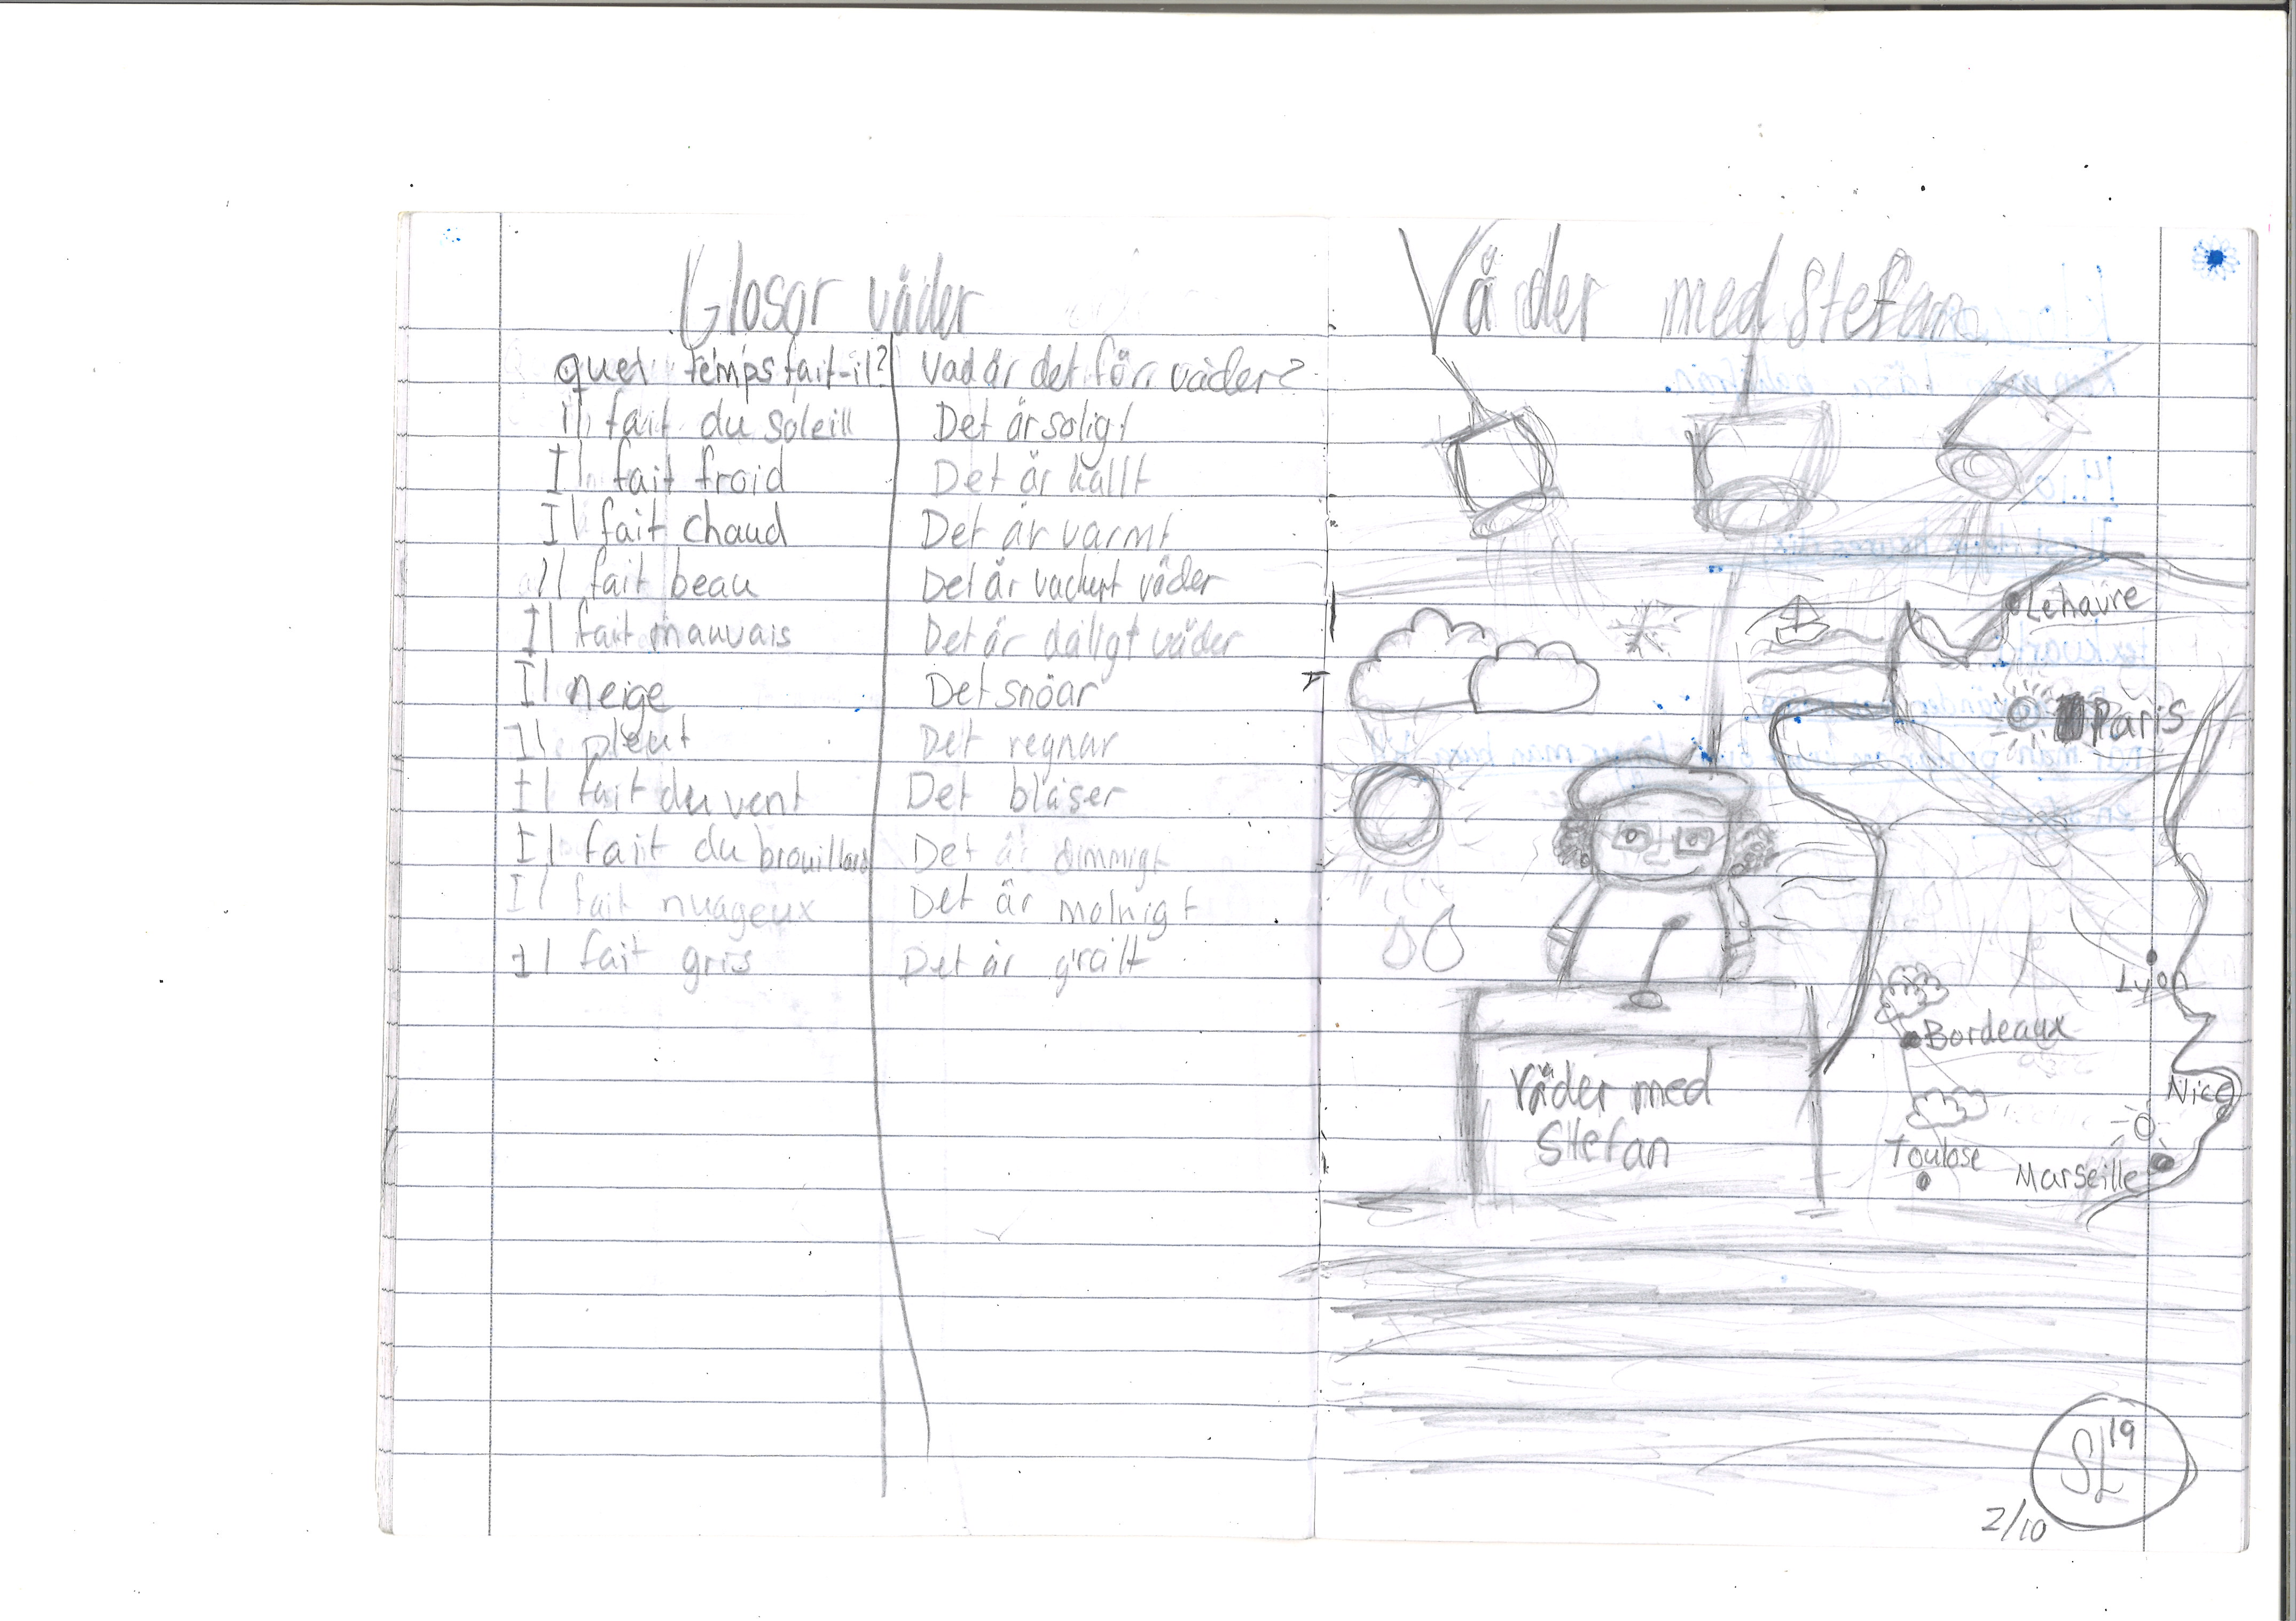 Glosor väder
quel temps fait-il? Vad är det för väder?
Il fait du soleill Det är soligt
Il fait froid Det är kallt
Il fait chaud Det är varmt
Il fait beau Det är vackert väder
Il fait mauvais Det är dåligt väder
Il neige Det snöar
Il pleut Det regnar
Il fait du vent Det blåser
Il fait du brouillard Det är dimmigt
Il fait nuageux Det är molnigt
Il fait gris Det är grått
Väder med Stefan
Lehavre
Paris
Lyon
Bordeaux
Nice
Toulose
Marseille
Väder med
Stefan
SL 19
2/10